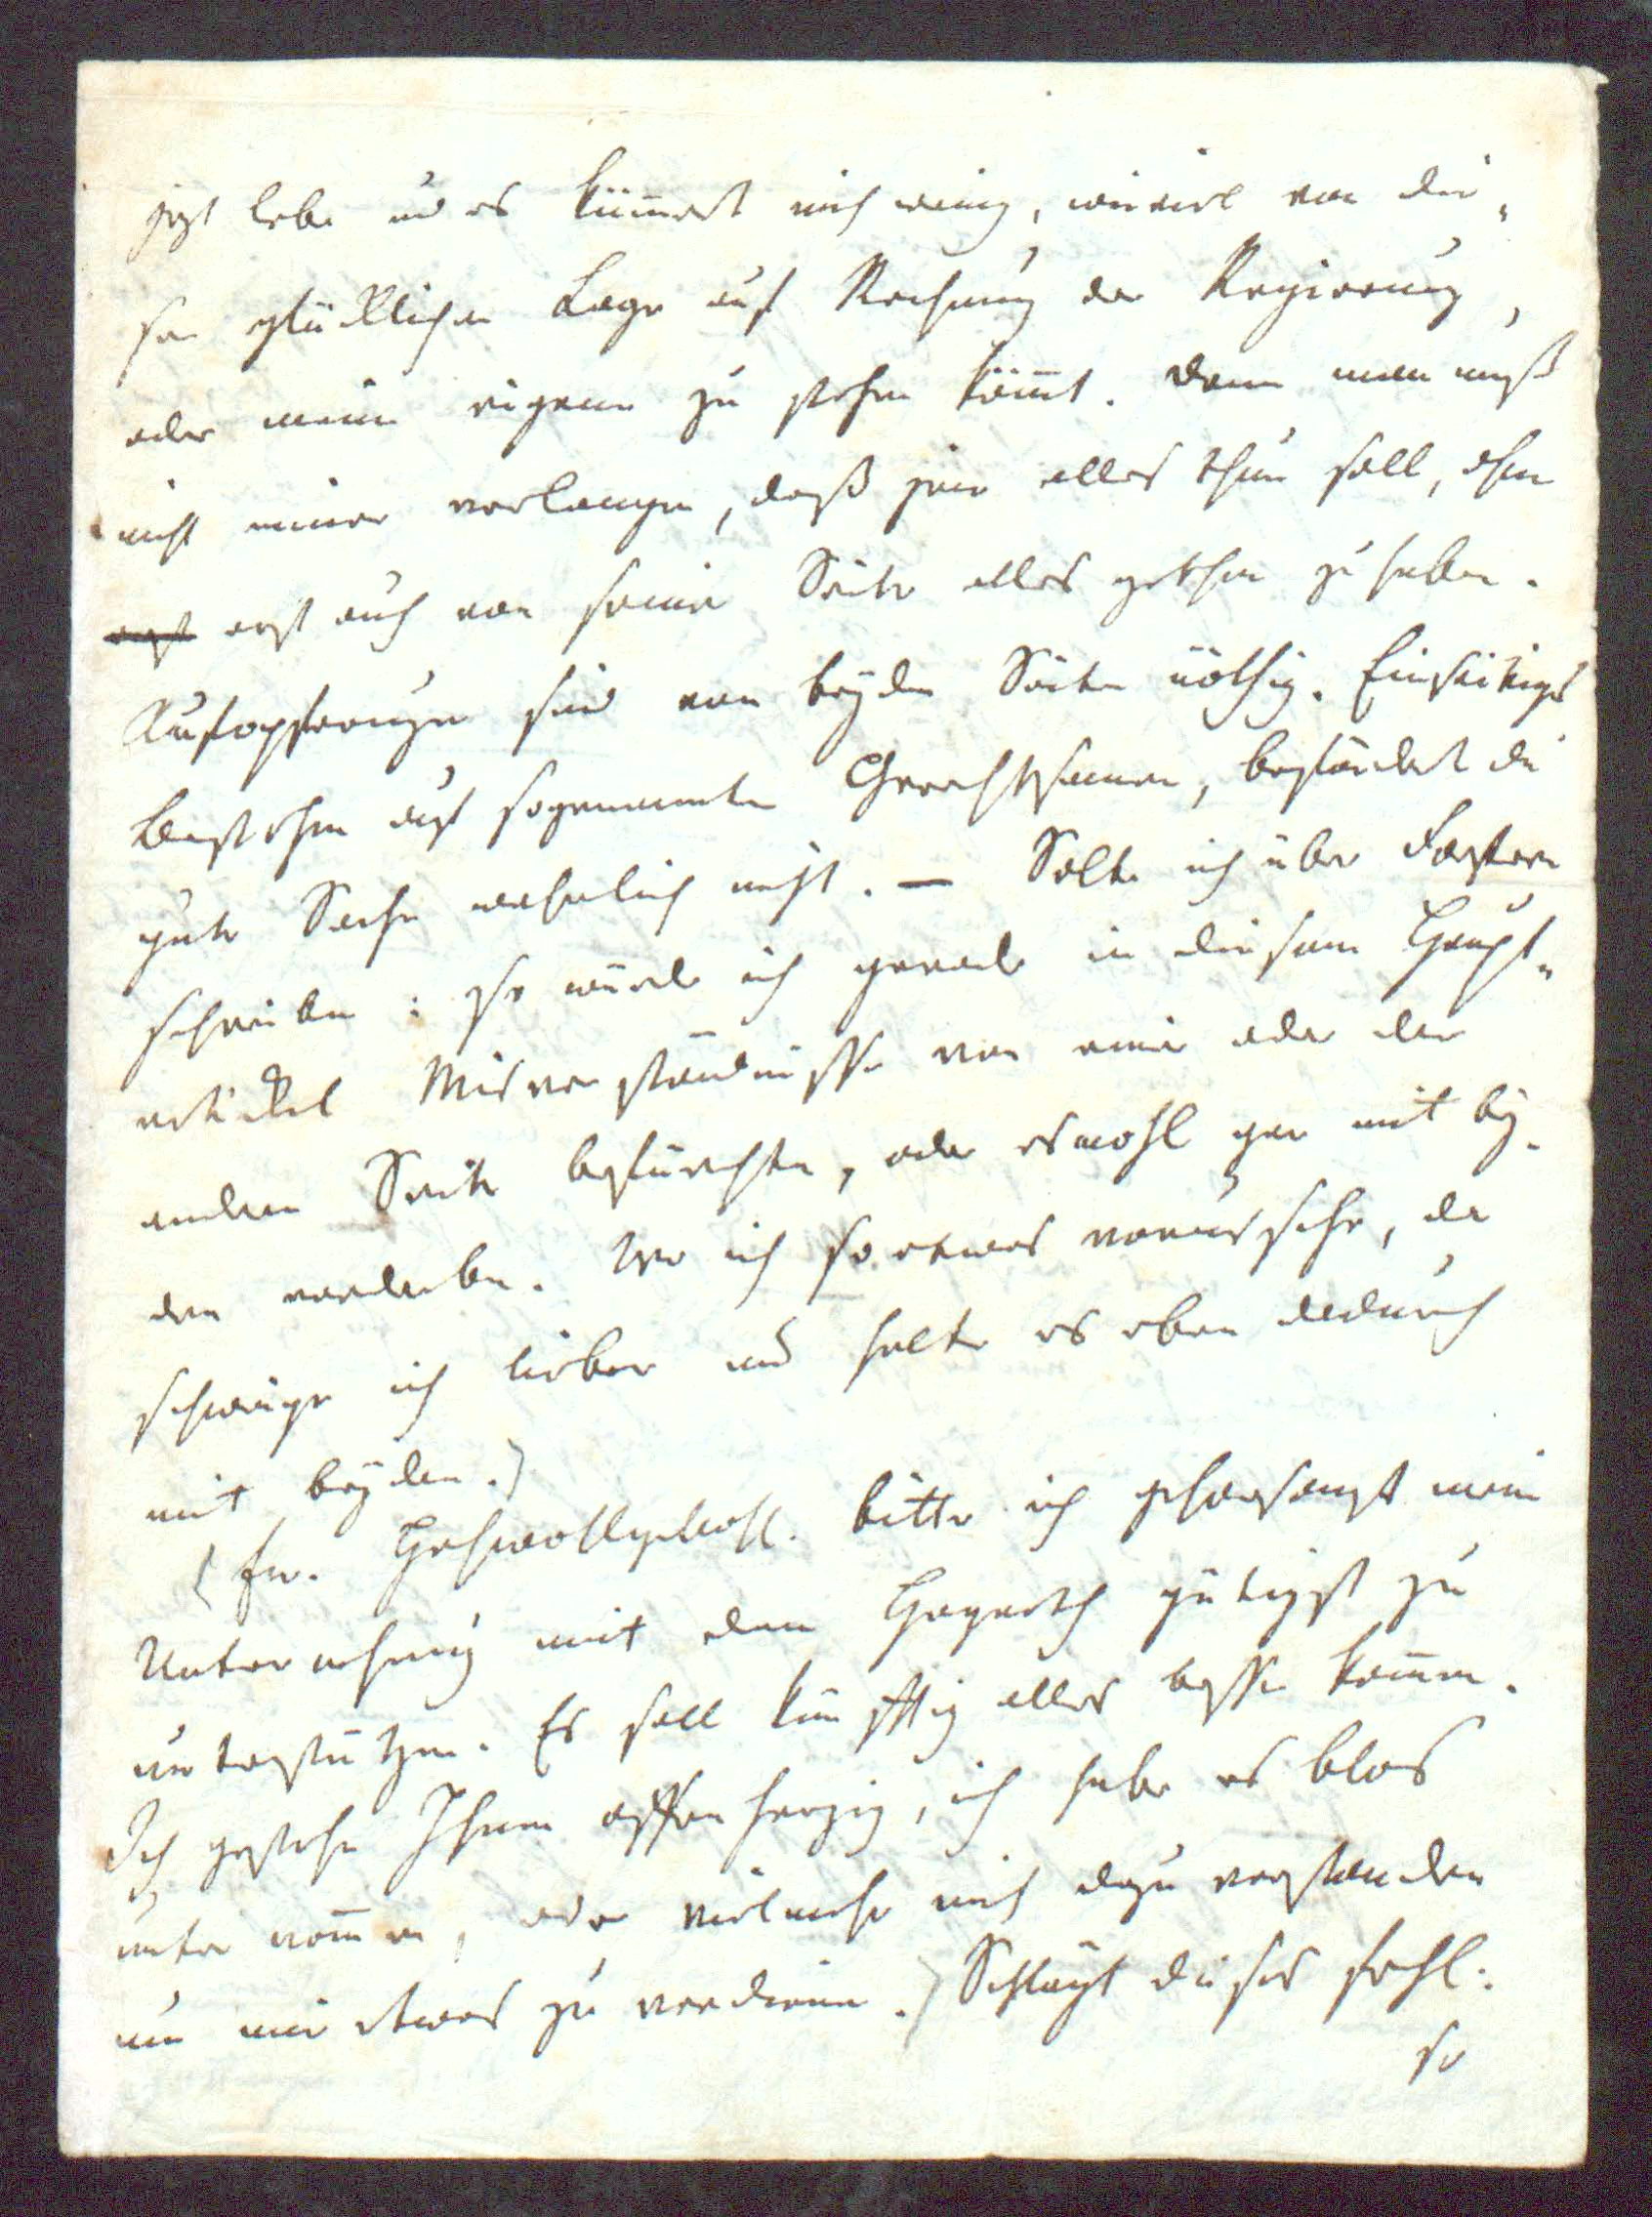 jezt lebe und es kümmert mich wenig, wieviel von die„
ser glücklichen Lage auf Rechnung der Regierung,
oder meine eigene zu stehen kömmt. Denn man muß
nicht immer verlangen, daß jene alles thun soll, ohne
erst auch von seiner Seite alles gethan zu haben.
Aufopferungen sind von beyden Seiten nöthig. Einseitiges
Bestehen auf sogenannten Gerechtsamen, befördert die
gute Sache wahrlich nicht. — Solte ich über
schreiben: so würde ich gerade in diesem Haupt„
artickel Misverständnisse von einer oder der
andern Seite befürchten, oder es wohl gar mit bey„
den verderben. Wo ich so etwas voraussehe, da
schweige ich lieber und halte es eben dadurch
mit beyden.)
(Ew. Hochwohlgebohl. bitte ich gehorsamst meine
Unternehmung mit dem gütigst zu
unterstützen. Es soll künfftig alles besser kommen.
Ich gestehe Ihnen offenherzig, ich habe es blos
unternommen, oder vielmehr mich dazu verstanden
um mir etwas zu verdienen.) Schlägt dieses fehl:
so